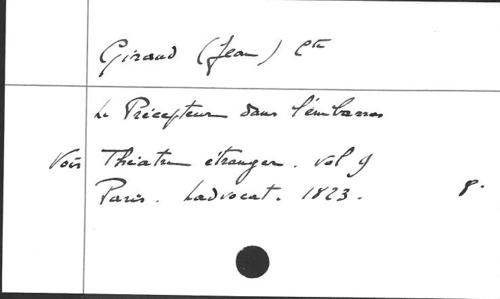 Giraud (Jean) Cte
Le Précepteur dans l'embarras
Voir Théatre étranger. vol 9
Paris. Ladvocat. 1823. 8.